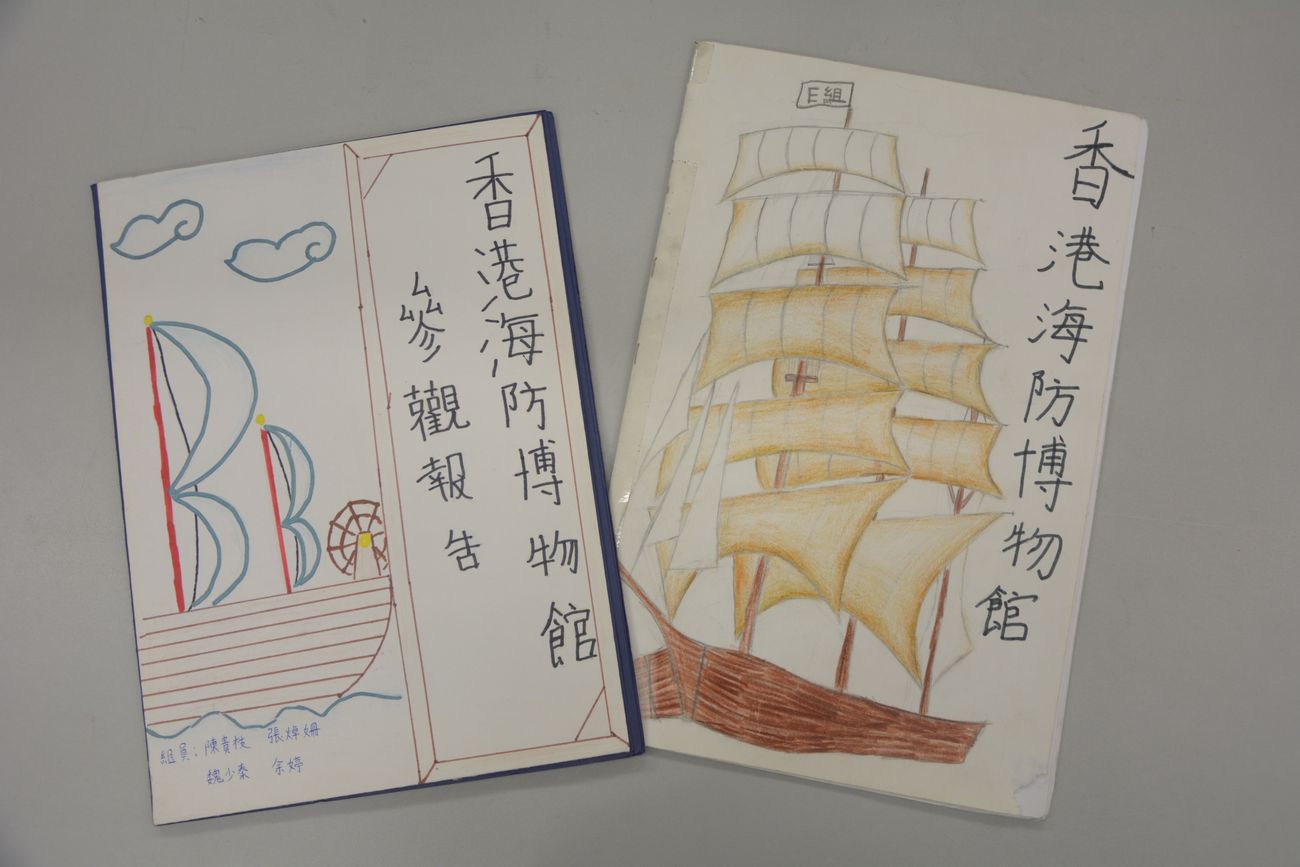 香港海防博物館
參觀報告
組員:陳貴枝 張焯姍
魏少秦 余婷
E組
香港海防博物館